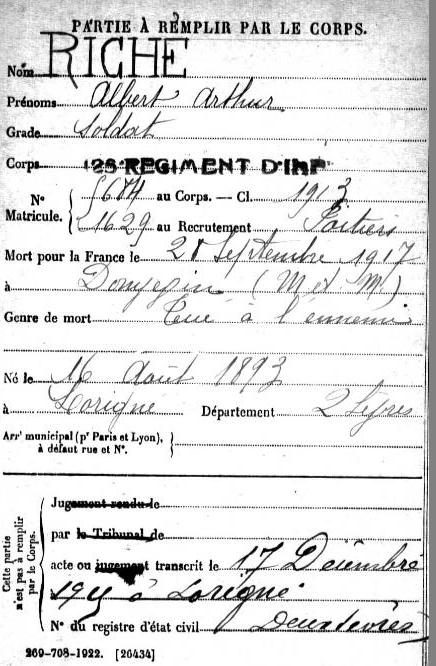 PARTIE À REMPLIR PAR LE CORPS.
Nom RICHE
Prénoms Albert Arthur
Grade Soldat
Corps 125 REGIMENT D'INF
N° Matricule. { au Corps. — Cl. 1913
1629 au Recrutement Poitiers
Mort pour la France le Septembre 1917
à (M et M.)
Genre de mort Tué à l'ennemi
Né le 16 Août 1893
à Lorigné Département 2 Sèvres
Arr' municipal (p' Paris et Lyon),
à défaut rue et N°.
Cette partie n'est pas à remplir par le Corps.
Jugement rendu le
par le Tribunal de
acte ou jugement transcrit le 17 Décembre
à Lorigné
N° du registre d'état civil Deux Sèvres
269-708-1922. [26434]